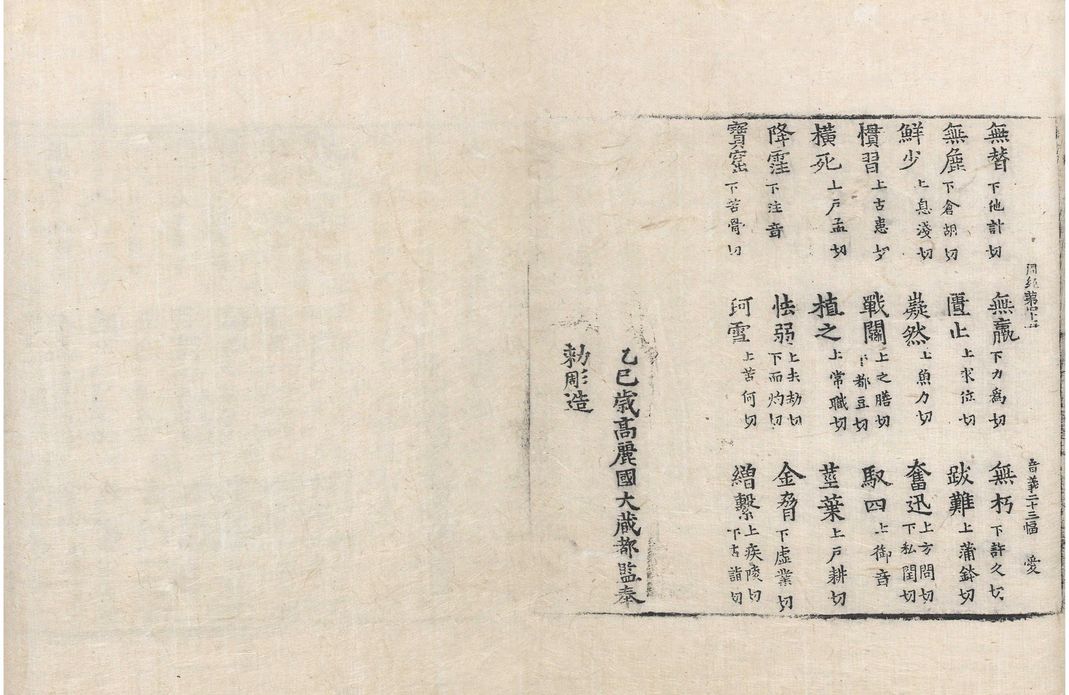 音義二十三幅 愛
無替 下他計切 無羸 下力爲切 無朽 下許久切
無麁 下倉胡切 匱止 上求位切 跋難 上蒲鉢切
鮮少 上息淺切 嶷然 上魚力切 奮迅 上方問切 下私閏切
慣習 上古患切 戰鬪 上之膳切 下都豆切 馭四 上御音
橫死 上戶孟切 植之 上常職切 莖葉 上戶耕切
降霔 下注音 怯弱 上去劫切 下而灼切 金脅 下虛業切
寶窟 下苦骨切 珂雪 上苦何切 繒繫 上疾陵切 下古詣切
乙巳歲高麗國大藏都監奉
勑彫造